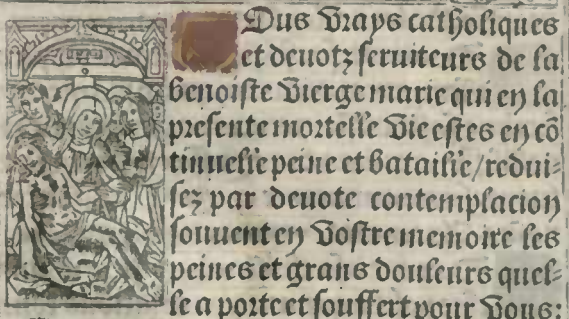 Ous vrays catholiques
et deuotz seruiteurs de la
benoiste vierge marie qui en la
presente mortelle vie estes en cõ
tinuelle peine et bataille/redui-
sez par deuote contemplacion
souuent en vostre memoire les
peines et grans douleurs quel-
le a porte et souffert pour vous: